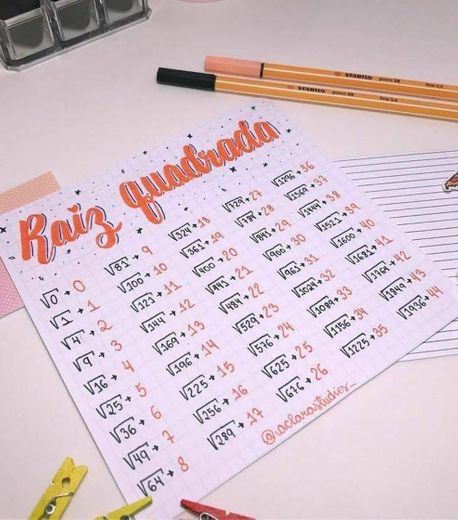 STABILO point 88 fine 0,4
STABILO point 88 fine 0,4
Raiz quadrada
√0 → 0
√1 → 1
√4 → 2
√9 → 3
√16 → 4
√25 → 5
√36 → 6
√49 → 7
√64 → 8
√81 → 9
√100 → 10
√121 → 11
√144 → 12
√169 → 13
√196 → 14
√225 → 15
√256 → 16
√289 → 17
√324 → 18
√361 → 19
√400 → 20
√441 → 21
√484 → 22
√529 → 23
√576 → 24
√625 → 25
√676 → 26
√729 → 27
√784 → 28
√841 → 29
√900 → 30
√961 → 31
√1024 → 32
√1089 → 33
√1156 → 34
√1225 → 35
√1296 → 36
√1369 → 37
√1444 → 38
√1521 → 39
√1600 → 40
√1681 → 41
√1764 → 42
√1849 → 43
√1936 → 44
@aclarastudies_